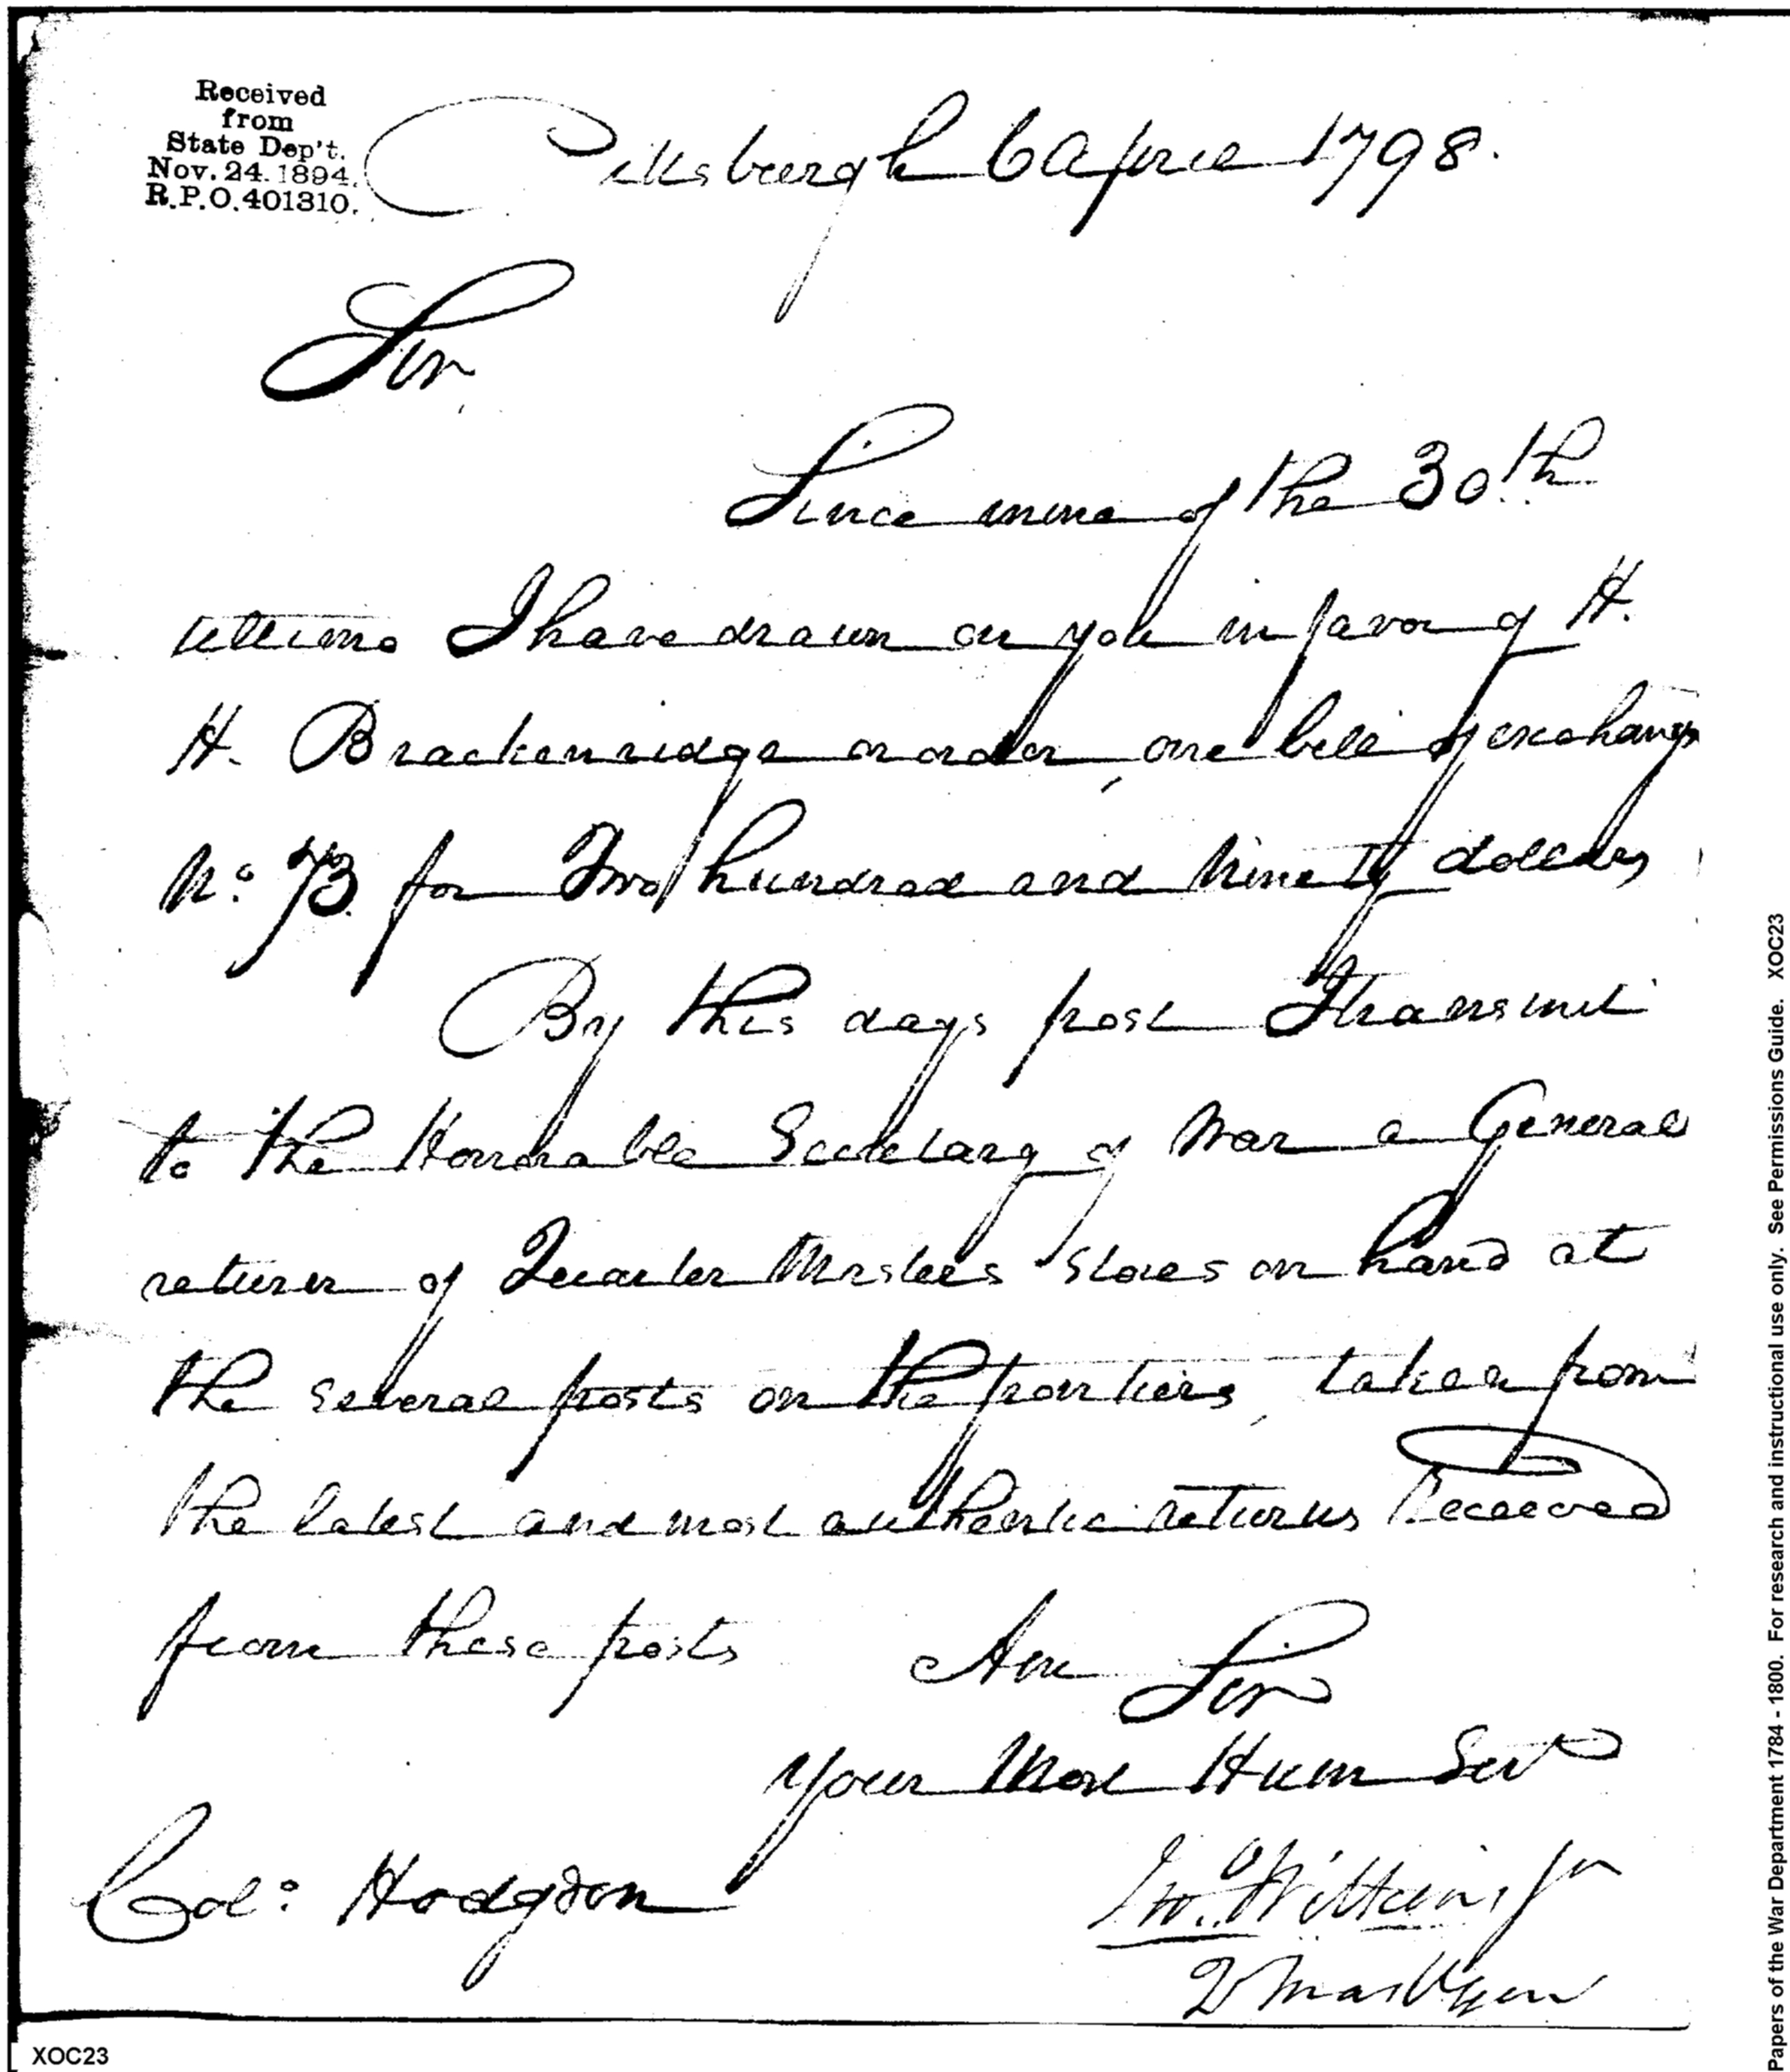 Received
from
State Dep't.
Nov. 24. 1894.
R.P.O. 401310.
Pittsburgh 6 April 1798.
Sir
Since mine of the 30th
ultimo I have drawn on you in favor of H.
H. Brackenridge or order, one bill of exchange
No. 73 for Two hundred and Ninety dollars
By this days post I transmit
to the Honorable Secretary of War a General
return of Quarter Masters Stores on hand at
the several posts on the frontiers, taken from
the latest and most authentic returns Received
from these posts Am Sir
Your Most Hum Servt
Col: Hodgdon
Jno. Wilkins Jr
Q Mas Gen
XOC23
Papers of the War Department 1784 - 1800. For research and instructional use only. See Permissions Guide. XOC23